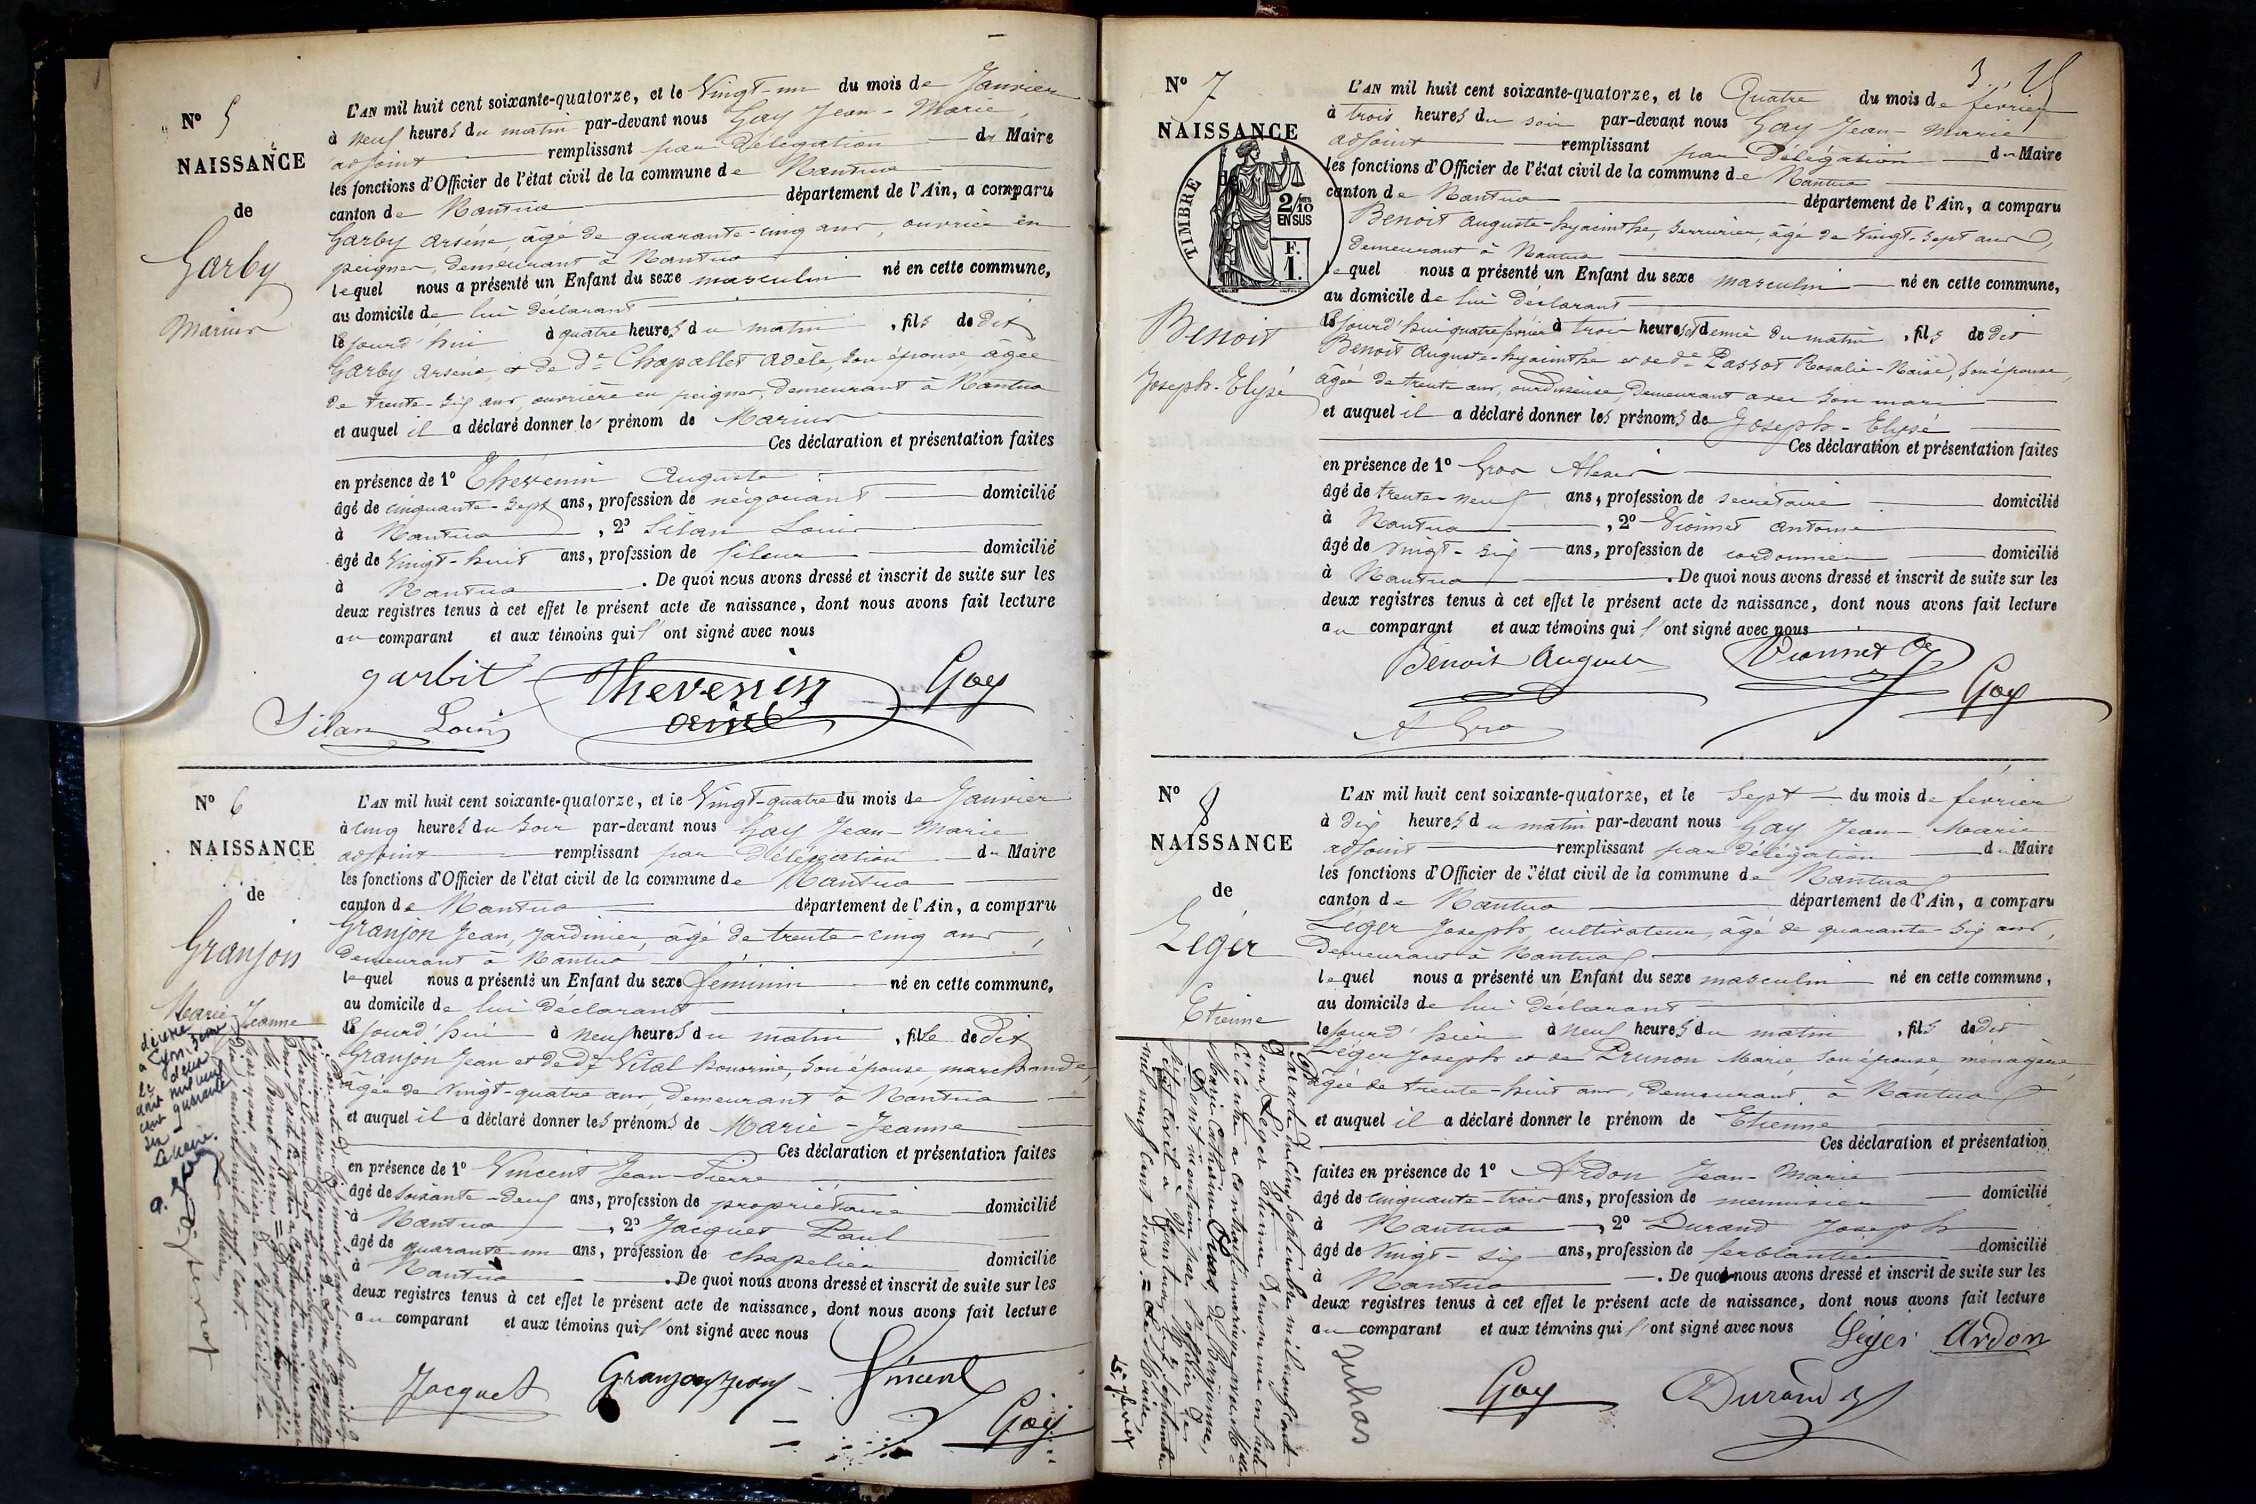 N° 5
NAISSANCE
de
Garby
Marius
L'AN mil huit cent soixante-quatorze, et le Vingt-un du mois de Janvier
à neuf heures du matin par-devant nous Gay Jean-Marie
adjoint remplissant par délégation du Maire
les fonctions d'Officier de l'état civil de la commune de Nantua
canton de Nantua département de l'Ain, a comparu
Garby Arsène, âgé de quarante-cinq ans, ouvrier en
peignes, demeurant à Nantua
lequel nous a présenté un Enfant du sexe masculin né en cette commune,
au domicile de lui déclarant
le jourd'hui à quatre heures du matin, fils de dit
Garby Arsène, et de De Chapallet Adèle, son épouse, âgée
de trente-six ans, ouvrière en peignes, demeurant à Nantua
et auquel il a déclaré donner le prénom de Marius
Ces déclaration et présentation faites
en présence de 1° Thévenin Auguste
âgé de cinquante-sept ans, profession de négociant domicilié
à Nantua, 2° Silan Louis
âgé de Vingt-huit ans, profession de fileur domicilié
à Nantua. De quoi nous avons dressé et inscrit de suite sur les
deux registres tenus à cet effet le présent acte de naissance, dont nous avons fait lecture
au comparant et aux témoins qui l'ont signé avec nous
garbit Thevenin Gay
Silan Louis ainé
N° 6
NAISSANCE
de
Granjon
Marie-Jeanne
L'AN mil huit cent soixante-quatorze, et le Vingt-quatre du mois de Janvier
à cinq heures du soir par-devant nous Gay Jean-Marie
adjoint remplissant par délégation du Maire
les fonctions d'Officier de l'état civil de la commune de Nantua
canton de Nantua département de l'Ain, a comparu
Granjon Jean, jardinier, âgé de trente-cinq ans,
demeurant à Nantua
lequel nous a présenté un Enfant du sexe féminin né en cette commune,
au domicile de lui déclarant
le jourd'hui à neuf heures du matin, fille de dit
Granjon Jean et de De Vital honorine, son épouse, marchande,
âgée de Vingt-quatre ans, demeurant à Nantua
et auquel il a déclaré donner les prénoms de Marie-Jeanne
Ces déclaration et présentation faites
en présence de 1° Vincent Jean-Pierre
âgé de soixante-deux ans, profession de propriétaire domicilié
à Nantua, 2° Jacquet Paul
âgé de quarante-un ans, profession de chapelier domicilié
à Nantua. De quoi nous avons dressé et inscrit de suite sur les
deux registres tenus à cet effet le présent acte de naissance, dont nous avons fait lecture
au comparant et aux témoins qui l'ont signé avec nous
Jacquet Granjon Jean Vincent
Gay
décédée
à Lyon
le deux
août mil neuf
cent quarante
six
Le Maire
N° 7
NAISSANCE
TIMBRE
2/10
EN SUS
F.
1.
Benoit
Joseph-Elysé
L'AN mil huit cent soixante-quatorze, et le Quatre du mois de février
à trois heures du soir par-devant nous Gay Jean-Marie
adjoint remplissant par délégation du Maire
les fonctions d'Officier de l'état civil de la commune de Nantua
canton de Nantua département de l'Ain, a comparu
Benoit Auguste-hyacinthe, serrurier, âgé de Vingt-sept ans,
demeurant à Nantua
lequel nous a présenté un Enfant du sexe masculin né en cette commune,
au domicile de lui déclarant
le jourd'hui quatre février à trois heures et demie du matin, fils de dit
Benoit Auguste-hyacinthe et de De Passot Rosalie-Naïse, son épouse,
âgée de trente ans, ourdisseuse, demeurant avec son mari
et auquel il a déclaré donner les prénoms de Joseph-Elysé
Ces déclaration et présentation faites
en présence de 1° Gros Alexis
âgé de trente-neuf ans, profession de secrétaire domicilié
à Nantua, 2° Vionnet Antoine
âgé de vingt-six ans, profession de cordonnier domicilié
à Nantua. De quoi nous avons dressé et inscrit de suite sur les
deux registres tenus à cet effet le présent acte de naissance, dont nous avons fait lecture
au comparant et aux témoins qui l'ont signé avec nous
Benoit Auguste Vionnet
Gay
A Gro
N° 8
NAISSANCE
de
Léger
Etienne
L'AN mil huit cent soixante-quatorze, et le Sept du mois de février
à dix heures du matin par-devant nous Gay Jean-Marie
adjoint remplissant par délégation du Maire
les fonctions d'Officier de l'état civil de la commune de Nantua
canton de Nantua département de l'Ain, a comparu
Léger Joseph, cultivateur, âgé de quarante-six ans,
demeurant à Nantua
lequel nous a présenté un Enfant du sexe masculin né en cette commune,
au domicile de lui déclarant
le jourd'hier à neuf heures du matin, fils de dit
Léger Joseph et de Prunon Marie, son épouse, ménagère,
âgée de trente-huit ans, demeurant à Nantua
et auquel il a déclaré donner le prénom de Etienne
Ces déclaration et présentation
faites en présence de 1° Ardon Jean-Marie
âgé de cinquante-trois ans, profession de menuisier domicilié
à Nantua, 2° Durand Joseph
âgé de Vingt-six ans, profession de ferblantier domicilié
à Nantua. De quoi nous avons dressé et inscrit de suite sur les
deux registres tenus à cet effet le présent acte de naissance, dont nous avons fait lecture
au comparant et aux témoins qui l'ont signé avec nous
Léger Ardon
Gay Durand
Par acte du cinq septembre mil neuf cent
Léger Etienne dénommé en l'acte
ci-contre a contracté mariage avec Mlle
Dont mention par l'officier de
l'état civil
mil neuf cent = Le Maire,